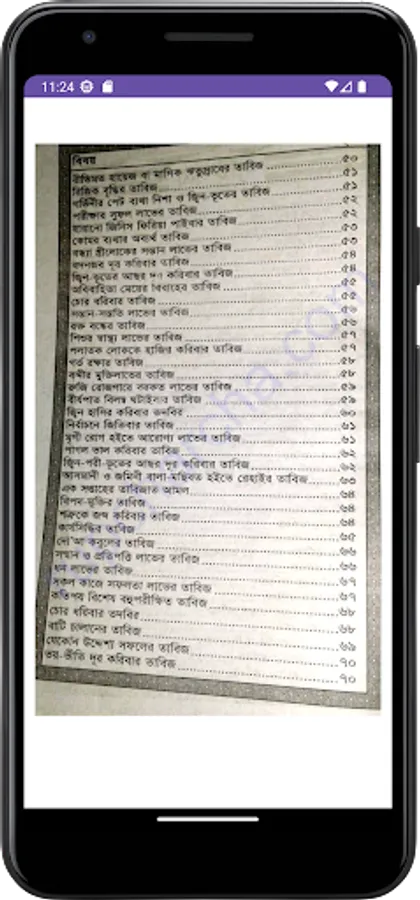 11:24
বিষয়
নিয়মিত হায়েজ বা মাসিক ঋতুস্রাবের তাবিজ ৫০
রিজিক বৃদ্ধির তাবিজ ৫১
গর্ভিনীর পেট ব্যথা নিশা ও জ্বিন-ভূতের তাবিজ ৫১
পরীক্ষার সুফল লাভের তাবিজ ৫২
হারানো জিনিস ফিরিয়া পাইবার তাবিজ ৫২
কোমর ব্যথার অব্যর্থ তাবিজ ৫৩
বন্ধ্যা স্ত্রীলোকের সন্তান লাভের তাবিজ ৫৩
বদনজর দূর করিবার তাবিজ ৫৪
জ্বিন-ভূতের আছর দূর করিবার তাবিজ ৫৪
অবিবাহিতা মেয়ের বিবাহের তাবিজ ৫৫
চোর ধরিবার তাবিজ ৫৫
সন্তান-সন্ততি লাভের তাবিজ ৫৬
রক্ত বন্ধের তাবিজ ৫৬
শিশুর স্বাস্থ্য লাভের তাবিজ ৫৭
পলাতক লোককে হাজির করিবার তাবিজ ৫৭
গর্ভ রক্ষার তাবিজ ৫৮
বন্দীর মুক্তিলাভের তাবিজ ৫৮
রুজি রোজগারে বরকত লাভের তাবিজ ৫৯
বীর্যপাত বিলম্ব ঘটাইবার তাবিজ ৫৯
জ্বিন হাসির করিবার তদবির ৬০
নির্বাচনে জিতিবার তাবিজ ৬১
মৃগী রোগ হইতে আরোগ্য লাভের তাবিজ ৬১
পাগল ভাল করিবার তাবিজ ৬২
জ্বিন-পরী-ভূতের আছর দূর করিবার তাবিজ ৬২
আসমানী ও জমিনী বালা-মছিবত হইতে রেহাইর তাবিজ ৬৩
এক সপ্তাহের তাবিজাত আমল ৬৪
বিপদ-মুক্তির তাবিজ
শত্রুকে জব্দ করিবার তাবিজ ৬৪
কার্যসিদ্ধির তাবিজ ৬৫
দো'আ কবুলের তাবিজ ৬৬
সম্মান ও প্রতিপত্তি লাভের তাবিজ ৬৬
ধন লাভের তাবিজ
সকল কাজে সফলতা লাভের তাবিজ ৬৭
কতিপয় বিশেষ বহুপরীক্ষিত তাবিজ ৬৭
চোর ধরিবার তদবির ৬৮
বাটি চালানের তাবিজ ৬৮
যেকোন উদ্দেশ্য সফলের তাবিজ ৬৯
ভয়-ভীতি দূর করিবার তাবিজ ৭০
৭০